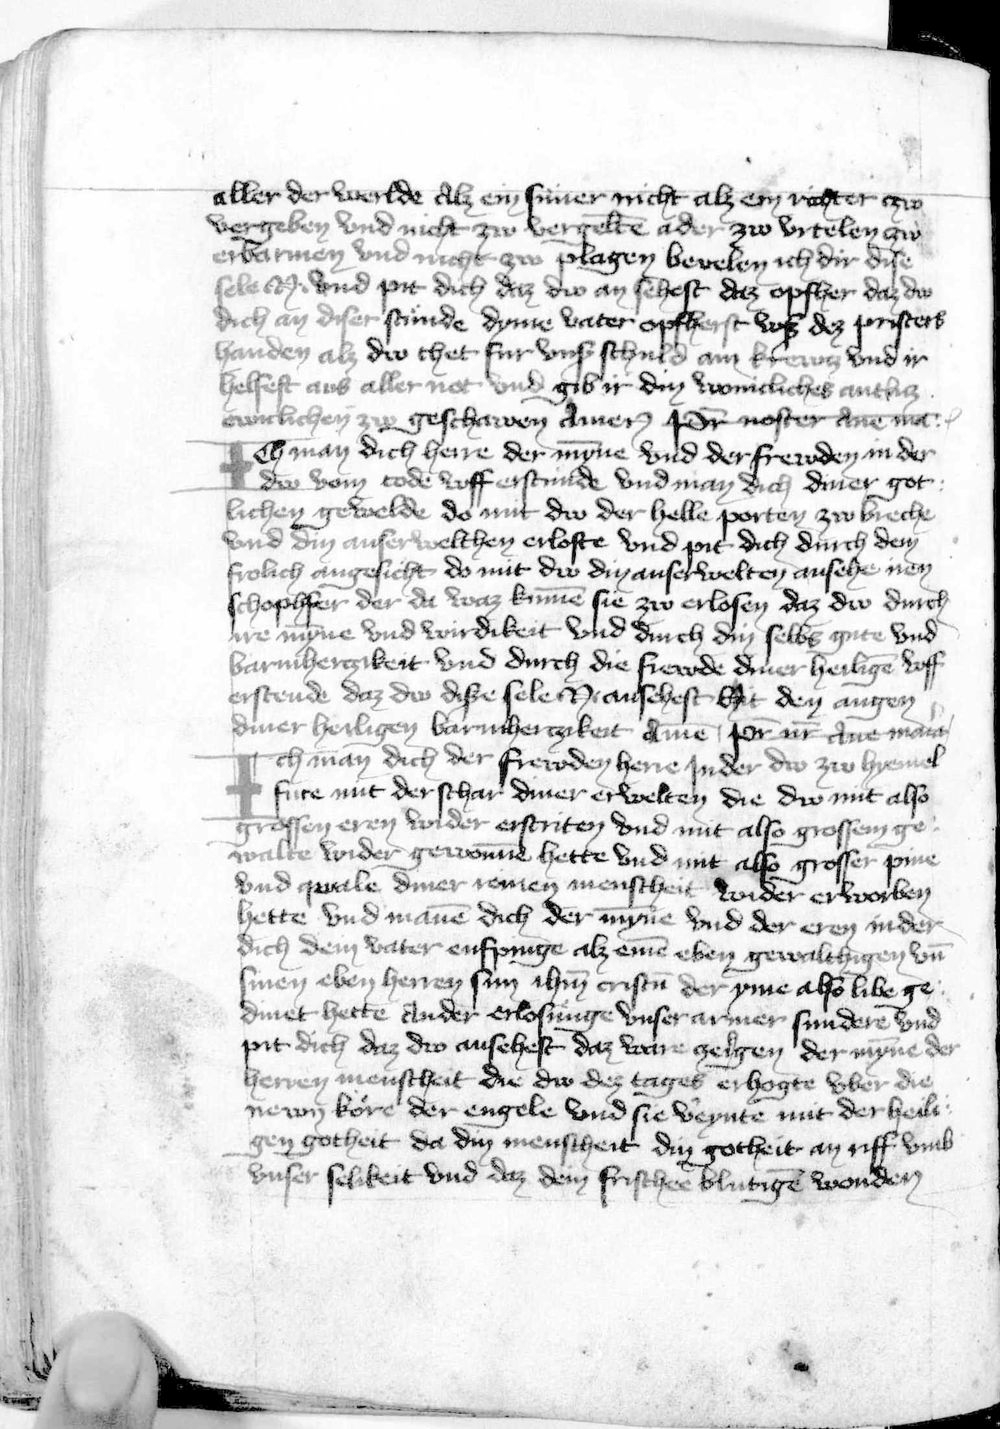 aller der werlde Alz ein suner nicht alz ein richter zw
vergeben vnd nicht zw vergeltē ader zw vrteilen zw
erbarmen vnd nicht zw plagen bevelen ich dir dise
sele N. vnd pit dich daz dw an sehest daz opfher daz dw
dich an diser stunde dyme vater opfherst vz dez pristers
handen alz dw thet fur vnß schuld am krewtz vnd ir
helfest aus aller not vnd gib ir din wonicliches antlitz
ewiclichen zw geschawen Amen Pr̄ noster Aue ma:
Ich man dich herre der mȳne vnd der frewden in der
dw vom tode vff erstunde vnd man dich diner got:
lichen gewelde do mit dw der helle porten zw breche
vnd din auserwelthen erloste vnd pit dich durch dein
frolich angesicht do mit dw din auserwelten ansehe iren
schophfer der da waz kumē sie zw erlosen daz dw durch
ire mȳne vnd wirdikeit vnd durch din selbs gute vnd
barmherczikeit vnd durch die frewde diner heiligē vff
erstende daz dw diße sele N. ansehest mit den augen
diner heiligen barmherczikeit Amē Pr̄ nr̄ Aue maria
Ich man dich der frewden herre In der dw zw hyemel
fure mit der schar diner erwelten die dw mit also
grossen eren wider erstriten vnd mit also grossem ge:
walte wider gewonnē hette vnd mit also grosser pine
vnd qwale diner reinen menscheit wider erworben
hette vnd manē dich der mȳne vnd der eren in der
dich dein vater enfpinge alz einē eben gewalthigen vn̄
sinen eben herren sun ihm̄ cristū der yme also libe ge:
dinet hette An der erlosunge vnser armer sundere vnd
pit dich daz dw ansehest daz ware zeigen der mȳne der
herren menscheit die dw dez tages erhogte vber die
newn kore der engele vnd sie v'eynte mit der heili:
gen gotheit da din menscheit din gotheit an riff vmb
vnser selikeit vnd daz dein frischee blutigē wonden